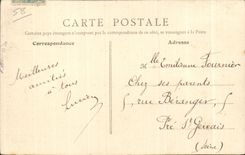 58
CARTE POSTALE
Certains pays étrangers n'acceptent pas la correspondance de ce côté, se renseigner à la Poste
Correspondance
Adresse
Meilleures
amitiés à
tous
Mlle Emilienne Fournier
Chez ses parents
5, rue Béranger, 5
Pré St Gervais
(Seine)